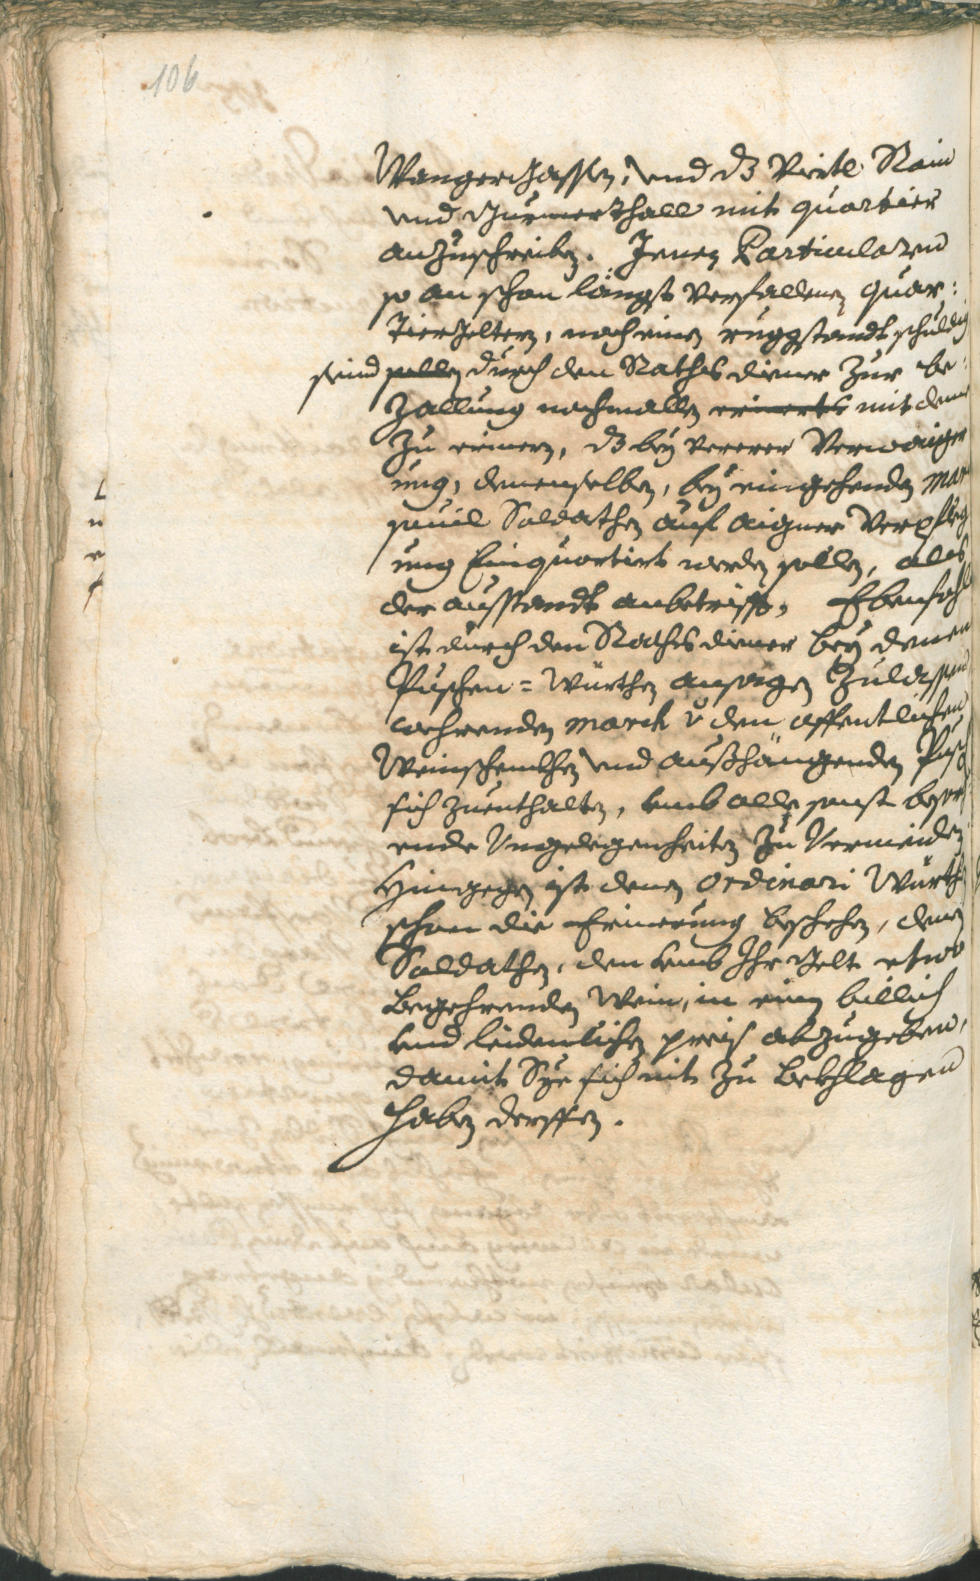 106
Wangergassen, und dz Viertl Rain
und Zurmerthall mit quartier
anzuschreiben. Jenen Particularen
so an schon längst verfallenen quar:
tiergeltern, noch einen ruggstandt schuldig
seind sollen durch den Rathsdiener zur be:
zallung nochmallen erinerts mit deme
zu erinern, dz bey verer Verwaiger
ung, denenselben, bey eingehenden mar
souil Soldathen auf aigner Verpfleg
ung Einquartiert werden sollen, alls
der ausstandt anbetrifft, Ebenfahls
ist durch den Rathsdiener bey denen
Puschen = Würthen ansagen zulassen
wehrenden march v den offentlichen
Weinschenkhen und außhängenden Pusch
sich zuenthalten, umb alle sonst besor
ende Ungelegenheiten zu Vermeiden
Hingegen ist denen Ordinari Würth
schon die Erinerung beschehen, denen
Soldathen, den umb Ihr Gelt etwo
Begehrenden Wein, in einen billich
und leidenlichen preis abzugeben,
damit Sye sich nit zu bekhlagen
haben derffen.